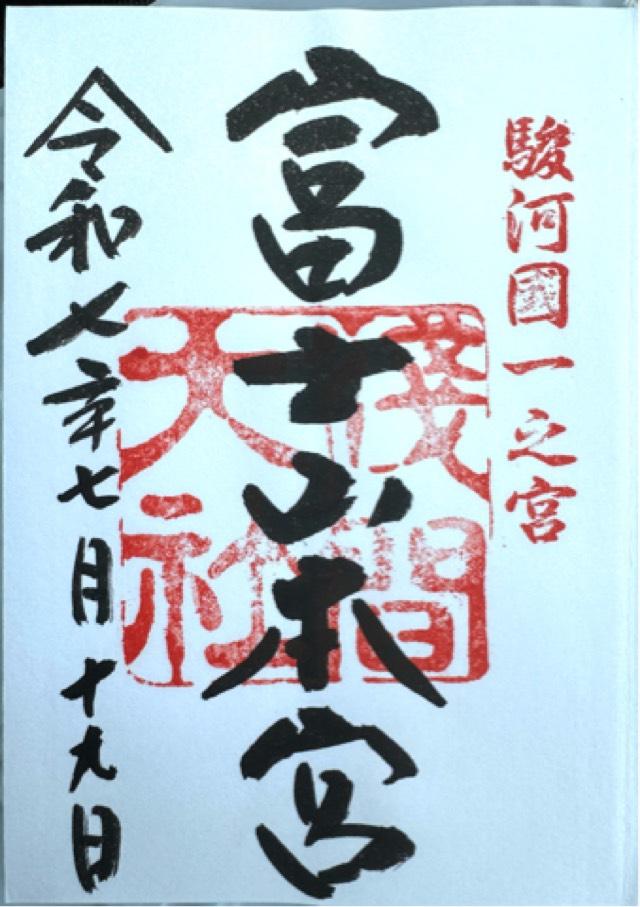 駿河國一之宮
富士山本宮
淺間
大社
令和七年七月十九日